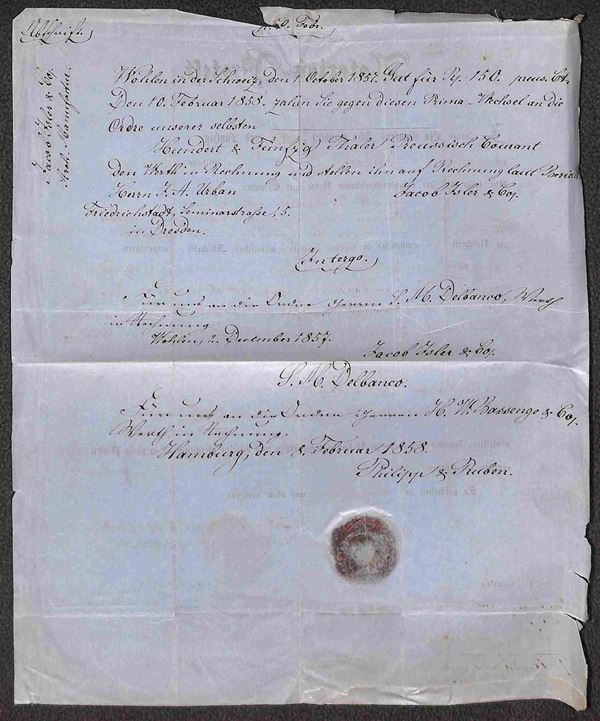 Abschrift
p. 10. Febr.
Jacob Isler & Co.
Stroh-Manufactur.
Wohlen in der Schweiz, den 1. October 1857. Gut für Rp. 150. preus. Ct.
Den 10. Februar 1858. zahlen Sie gegen diesen Prima-Wechsel an die
Ordre unserer selbsten
Hundert & Fünfzig Thaler Preussisch Courant
den Werth in Rechnung und stellen ihn auf Rechnung laut Bericht
Herrn J. A. Urban
Jacob Isler & Co.
Friedrichstadt, Seminarstraße, 5.
in Dresden.
In tergo.
Für uns an die Ordre Herrn S. M. Delbanco, Werth
in Rechnung
Wohlen, 2. December 1857.
Jacob Isler & Co.
S. M. Delbanco.
Für uns an die Ordre Herren H. W. Bassenge & Co.
Werth in Rechnung.
Hamburg, den 8. Februar 1858.
Philipp & Ruben.